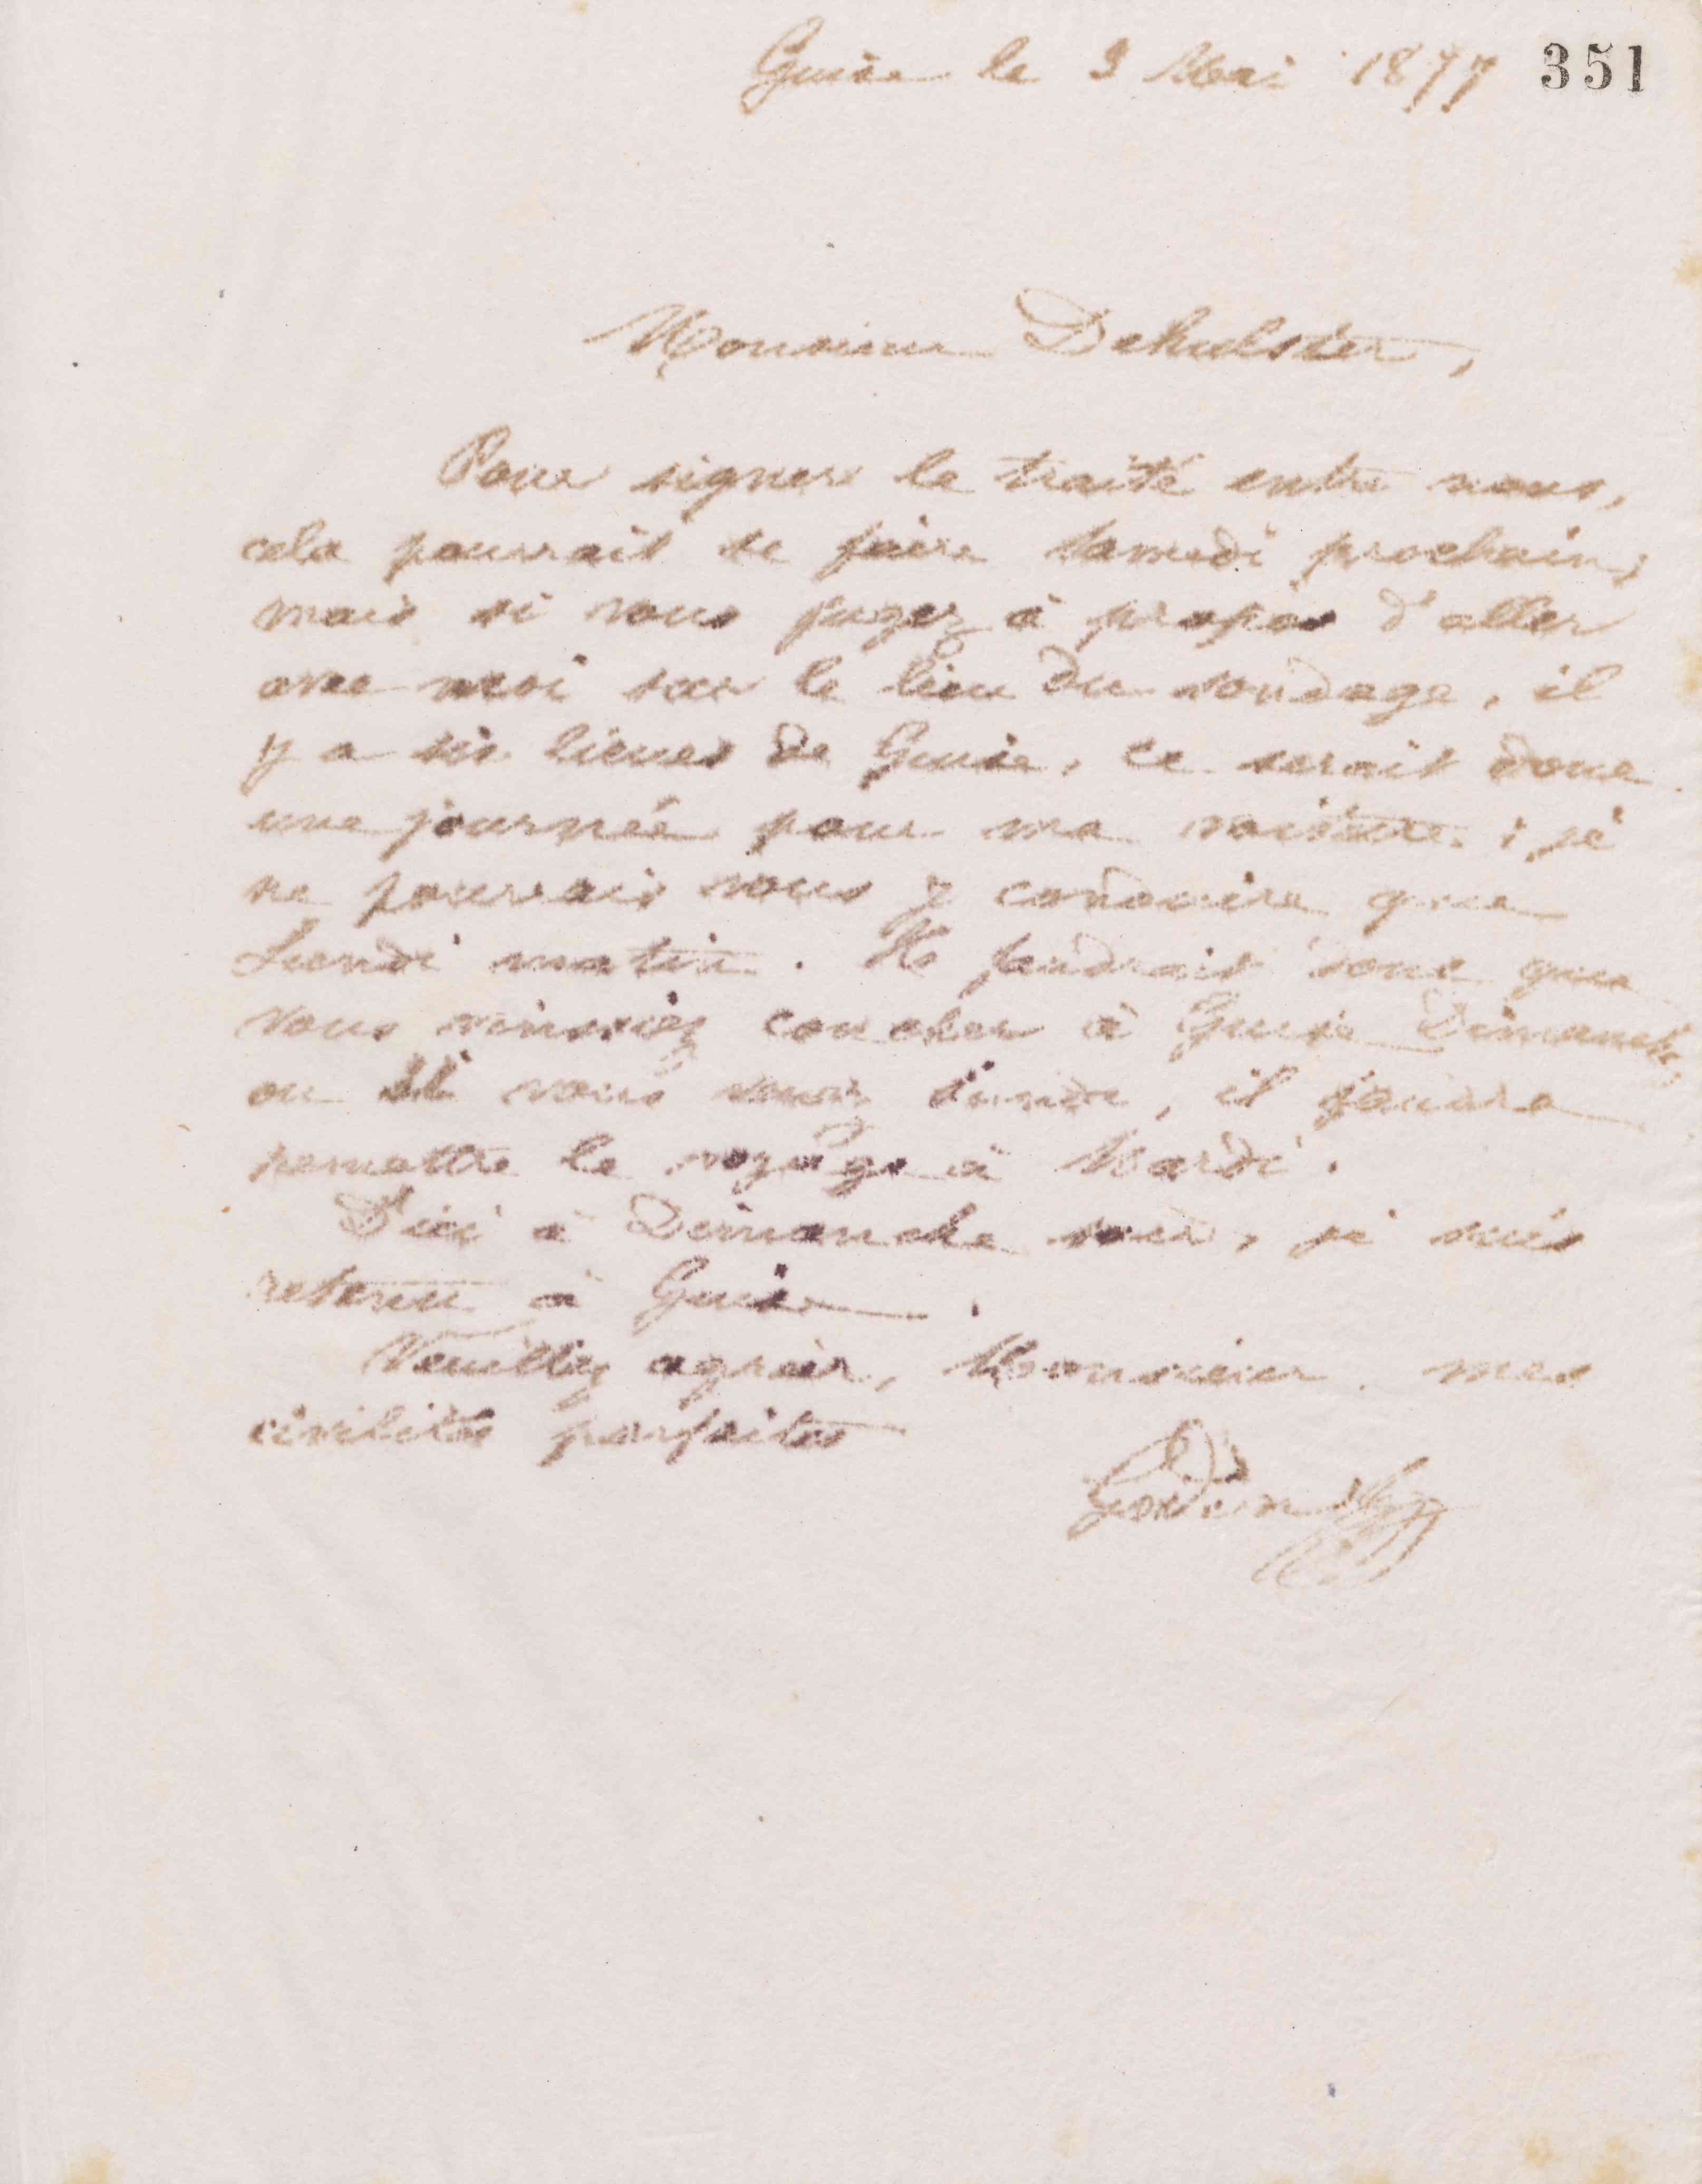 Guise le 3 Mai 1877 351
Monsieur Dehulster,
Pour signer le traité entre nous,
cela pourrait se faire samedi prochain;
mais si vous jugez à propos d'aller
avec moi sur le lieu du sondage, il
y a six lieues de Guise, ce serait donc
une journée pour ma voiture; je
ne pourrais vous y conduire que
Lundi matin. Il faudrait donc que
vous vinssiez coucher à Guise Dimanche,
ou si vous venez Lundi, il faudra
remettre le voyage à Mardi.
D'ici à Dimanche soir, je suis
retenu à Guise.
Veuillez agréer, Monsieur, mes
civilités parfaites
Godin